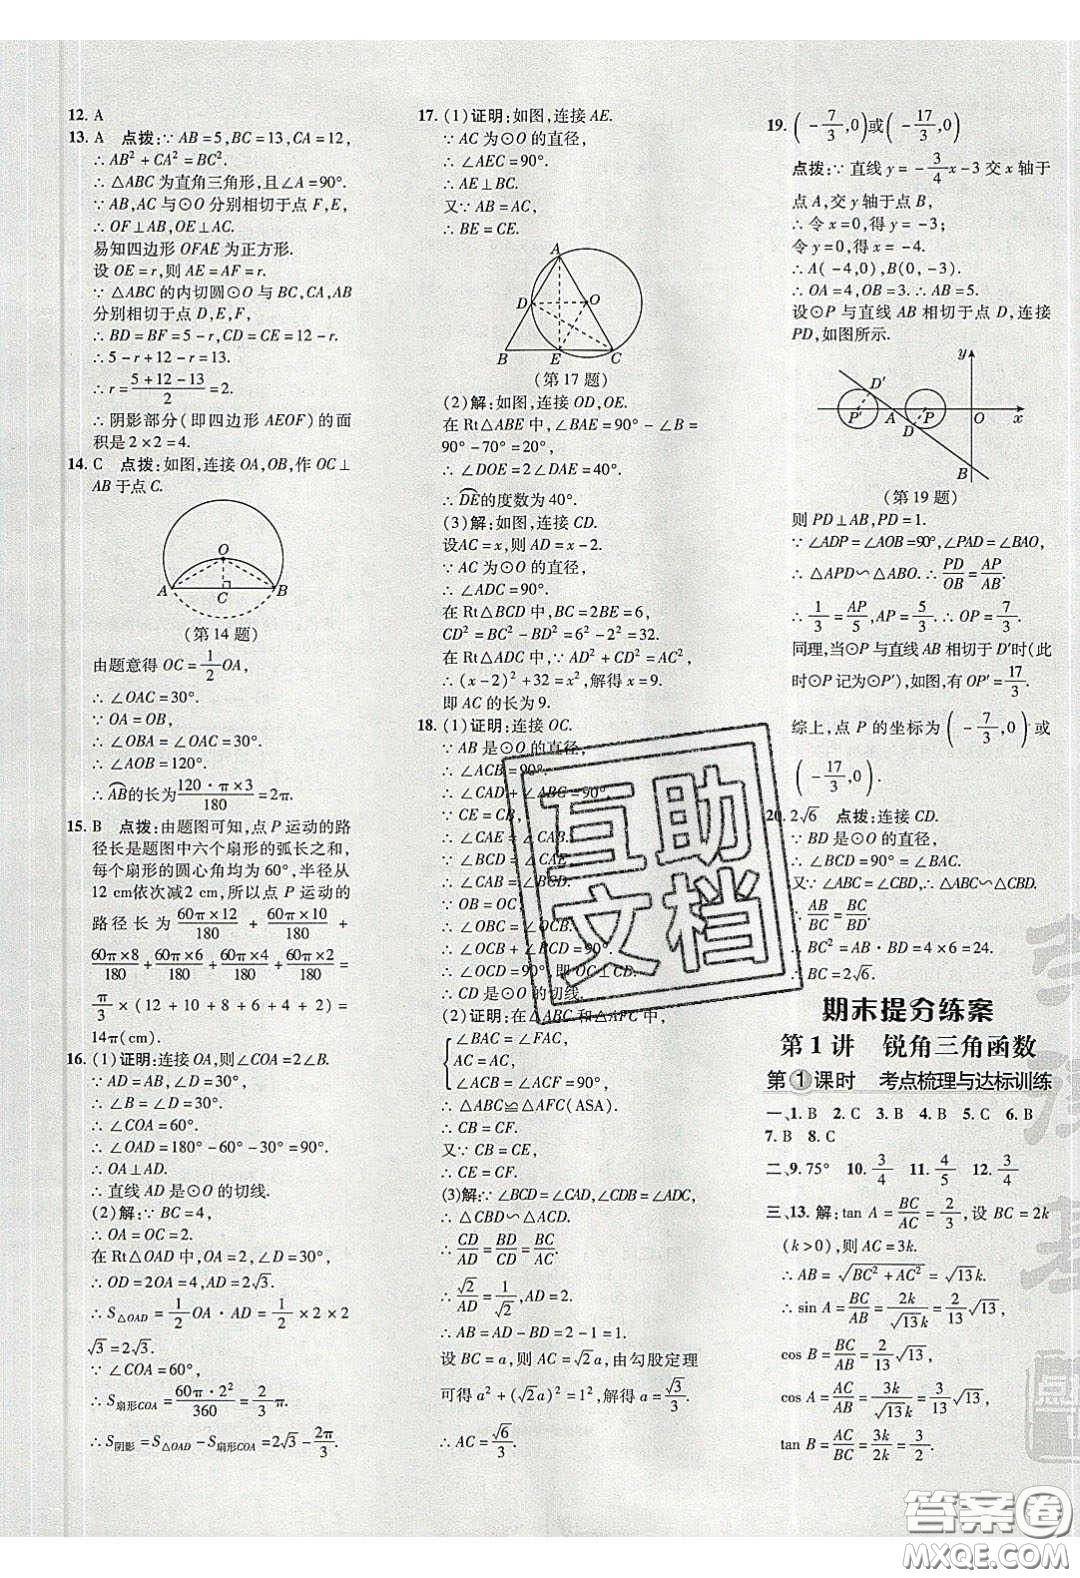 12. A
13. A 点拨:∵AB=5,BC=13,CA=12,
∴AB²+CA²=BC².
∴△ABC 为直角三角形,且∠A=90°.
∵AB,AC与⊙O 分别相切于点 F,E,
∴OF⊥AB,OE⊥AC.
易知四边形 OFAE 为正方形.
设 OE=r,则 AE=AF=r.
∵△ABC 的内切圆⊙O 与 BC,CA,AB
分别相切于点 D,E,F,
∴BD=BF=5-r,CD=CE=12-r.
∴5-r+12-r=13.
∴r=(5+12-13)/2=2.
∴阴影部分(即四边形 AEOF)的面
积是 2×2=4.
14. C 点拨:如图,连接 OA,OB,作 OC⊥
AB 于点 C.
O
A C B
(第 14 题)
由题意得 OC=1/2 OA,
∴∠OAC=30°.
∵OA=OB,
∴∠OBA=∠OAC=30°.
∴∠AOB=120°.
∴AB的长为(120·π×3)/180=2π.
15. B 点拨:由题图可知,点 P 运动的路
径长是题图中六个扇形的弧长之和,
每个扇形的圆心角均为 60°,半径从
12 cm依次减2 cm,所以点 P 运动的
路径长为 (60π×12)/180+(60π×10)/180+
(60π×8)/180+(60π×6)/180+(60π×4)/180+(60π×2)/180=
π/3×(12+10+8+6+4+2)=
14π(cm).
16. (1)证明:连接 OA,则∠COA=2∠B.
∵AD=AB,
∴∠B=∠D=30°.
∴∠COA=60°.
∴∠OAD=180°-60°-30°=90°.
∴OA⊥AD.
∴直线 AD 是⊙O 的切线.
(2)解:∵BC=4,
∴OA=OC=2.
在 Rt△OAD 中,OA=2,∠D=30°,
∴OD=2OA=4,AD=2√3.
∴S△OAD=1/2 OA·AD=1/2×2×2
√3=2√3.
∵∠COA=60°,
∴S扇形COA=(60π·2²)/360=2/3 π.
∴S阴影=S△OAD-S扇形COA=2√3-2π/3.
17. (1)证明:如图,连接 AE.
∵AC 为⊙O 的直径,
∴∠AEC=90°.
∴AE⊥BC.
又∵AB=AC,
∴BE=CE.
A
D O
B E C
(第 17 题)
(2)解:如图,连接 OD,OE.
在 Rt△ABE 中,∠BAE=90°-∠B=
90°-70°=20°,
∴∠DOE=2∠DAE=40°.
∴DE的度数为 40°.
(3)解:如图,连接 CD.
设AC=x,则 AD=x-2.
∵AC 为⊙O 的直径,
∴∠ADC=90°.
在 Rt△BCD 中,BC=2BE=6,
CD²=BC²-BD²=6²-2²=32.
在 Rt△ADC 中,∵AD²+CD²=AC²,
∴(x-2)²+32=x²,解得 x=9.
即 AC 的长为 9.
18. (1)证明:连接 OC.
∵AB 是⊙O 的直径,
∴∠ACB=90°.
∴∠CAD+∠ABC=90°.
∵CE=CB,
∴∠CAE=∠CAB.
∵∠BCD=∠CAE,
∴∠CAB=∠BCD.
∵OB=OC,
∴∠OBC=∠OCB.
∴∠OCB+∠BCD=90°.
∴∠OCD=90°,即 OC⊥CD.
∴CD 是⊙O 的切线.
(2)证明:在△ABC 和△AFC 中,
∠BAC=∠FAC,
AC=AC,
∠ACB=∠ACF,
∴△ABC≌△AFC(ASA).
∴CB=CF.
又∵CB=CE,
∴CE=CF.
(3)解:∵∠BCD=∠CAD,∠ADC=∠ADC,
∴△CBD∽△ACD.
∴CD/AD=BD/CD=BC/AC.
∴√2/AD=1/√2,AD=2.
∴AB=AD-BD=2-1=1.
设 BC=a,则 AC=√2a,由勾股定理
可得 a²+(√2a)²=1²,解得 a=√3/3.
∴AC=√6/3.
19. (-7/3,0)或(-17/3,0)
点拨:∵直线 y=-3/4 x-3 交 x 轴于
点 A,交 y 轴于点 B,
∴令 x=0,得 y=-3;
令 y=0,得 x=-4.
∴A(-4,0),B(0,-3).
∴OA=4,OB=3.∴AB=5.
设⊙P 与直线 AB 相切于点 D,连接
PD,如图所示.
y
D′
P′ A D P O x
B
(第 19 题)
则 PD⊥AB,PD=1.
∵∠ADP=∠AOB=90°,∠PAD=∠BAO,
∴△APD∽△ABO.∴PD/OB=AP/AB.
∴1/3=AP/5,AP=5/3.∴OP=7/3.
同理,当⊙P 与直线 AB 相切于 D′时(此
时⊙P 记为⊙P′),如图,有 OP′=17/3.
综上,点 P 的坐标为(-7/3,0)或
(-17/3,0).
20. 2√6 点拨:连接 CD.
∵BD 是⊙O 的直径,
∴∠BCD=90°=∠BAC.
又∵∠ABC=∠CBD,∴△ABC∽△CBD.
∴AB/BC=BC/BD.
∴BC²=AB·BD=4×6=24.
∴BC=2√6.
期末提分练案
第 1 讲 锐角三角函数
第①课时 考点梳理与达标训练
一、1. B 2. C 3. B 4. B 5. C 6. B
7. B 8. C
二、9. 75° 10. 3/4 11. 4/5 12. 3/4
三、13. 解:tan A=BC/AC=2/3,设 BC=2k
(k>0),则 AC=3k.
∴AB=√(BC²+AC²)=√13k.
∴sin A=BC/AB=2k/√13k=2/13 √13,
cos B=BC/AB=2/13 √13,
cos A=AC/AB=3k/√13k=3/13 √13,
tan B=AC/BC=3k/2k=3/2.
互助
文档
答案卷
MXQE.COM